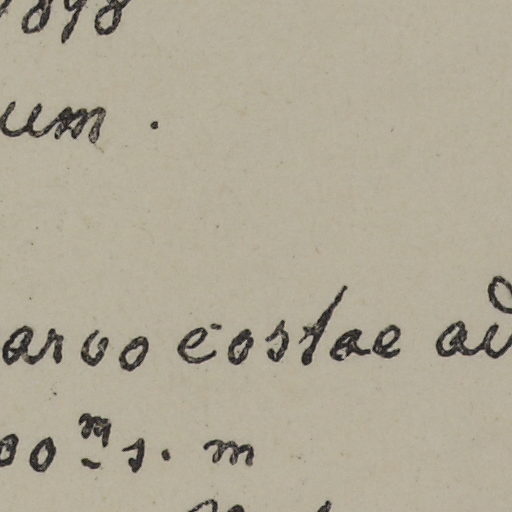 1898
um.
arvo costae ad
00 m s. m